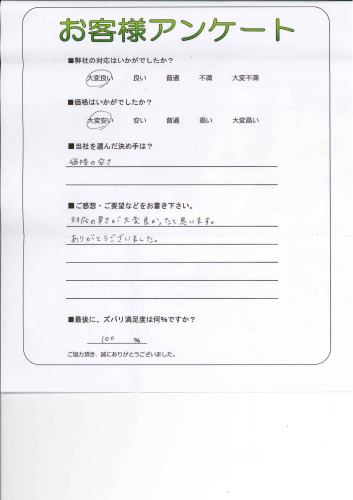 お客様アンケート
■弊社の対応はいかがでしたか？
大変良い 良い 普通 不満 大変不満
■価格はいかがでしたか？
大変安い 安い 普通 高い 大変高い
■当社を選んだ決め手は？
価格の安さ
■ご感想・ご要望などをお書き下さい。
対応の早さが大変良かったと思います。
ありがとうございました。
■最後に、ズバリ満足度は何%ですか？
100 %
ご協力頂き、誠にありがとうございました。